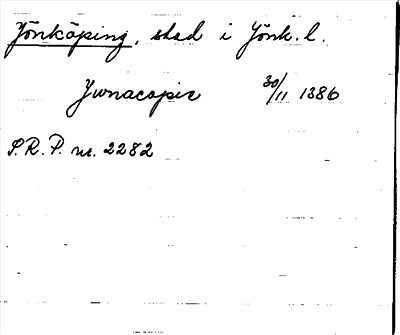 Jönköping, stad i Jönk. l.
Junacopie 30/11 1386
S.R.P. nr. 2282